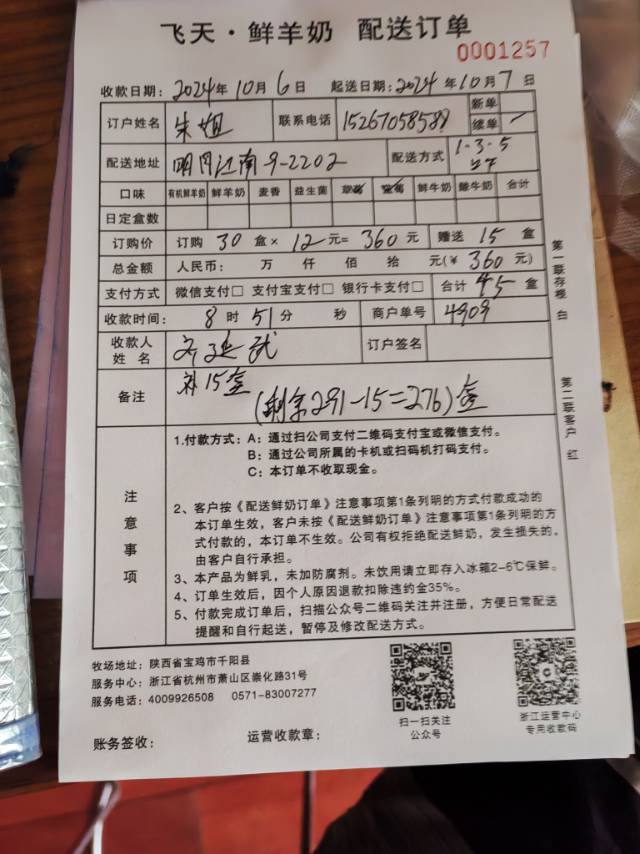 飞天·鲜羊奶 配送订单
0001257
收款日期：2024年10月6日 起送日期：2024年10月7日
订户姓名 朱姐 联系电话 15267058589 新单
续单 ✓
配送地址 明月江南9-2202 配送方式 1-3-5
口味 有机鲜羊奶 鲜羊奶 麦香 益生菌 草莓 蓝莓 鲜牛奶 酸牛奶 合计
日定盒数
订购价 订购 30 盒× 12 元= 360 元 赠送 15 盒
总金额 人民币： 万 仟 佰 拾 元(¥ 360 元)
支付方式 微信支付□ 支付宝支付□ 银行卡支付□ 合计 45 盒
收款时间： 8 时 51 分 秒 商户单号 4909
收款人
姓名 订户签名
备注 补15盒
(剩余291-15=276)盒
注意事项
1.付款方式：A：通过扫公司支付二维码支付宝或微信支付。
B：通过公司所属的卡机或扫码机打码支付。
C：本订单不收取现金。
2、客户按《配送鲜奶订单》注意事项第1条列明的方式付款成功的
本订单生效，客户未按《配送鲜奶订单》注意事项第1条列明的方
式付款的，本订单不生效。公司有权拒绝配送鲜奶，发生损失的，
由客户自行承担。
3、本产品为鲜乳，未加防腐剂。未饮用请立即存入冰箱2-6℃保鲜。
4、订单生效后，因个人原因退款扣除违约金35%。
5、付款完成订单后，扫描公众号二维码关注并注册，方便日常配送
提醒和自行起送，暂停及修改配送方式。
第一联存根 白
第二联客户 红
牧场地址：陕西省宝鸡市千阳县
服务中心：浙江省杭州市萧山区崇化路31号
服务电话：4009926508 0571-83007277
扫一扫关注
公众号
浙江运营中心
专用收款码
账务签收： 运营收款章：